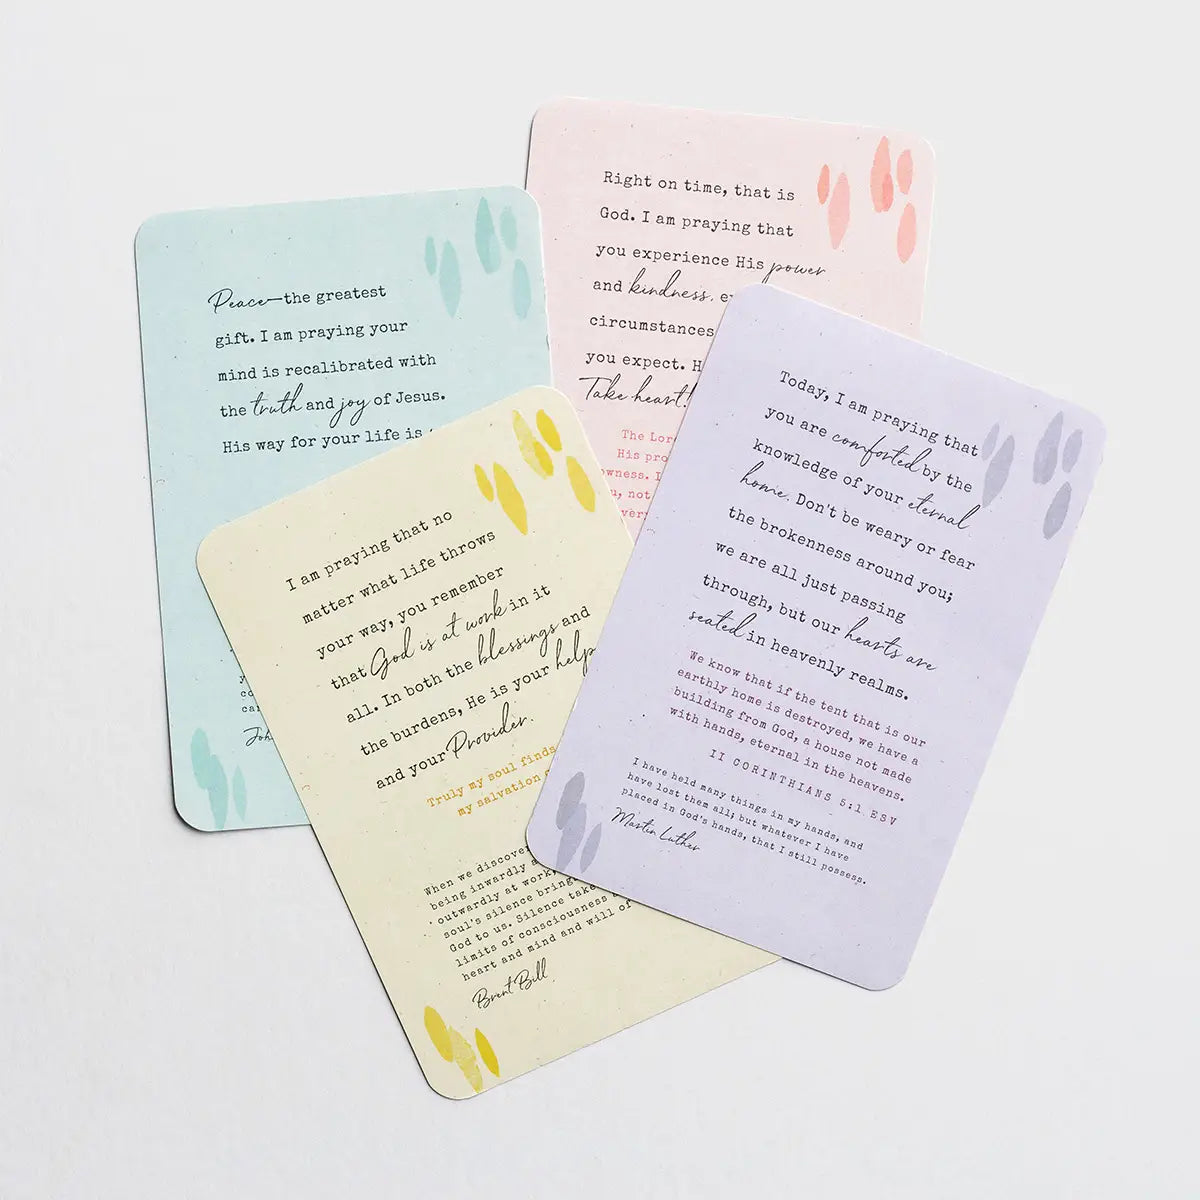 Peace—the greatest
gift. I am praying your
mind is recalibrated with
the truth and joy of Jesus.
His way for your life is
Right on time, that is
God. I am praying that
you experience His power
and kindness,
circumstances
you expect.
Take heart!
The Lor
His pro
owness. I
u, not
very
I am praying that no
matter what life throws
your way, you remember
that God is at work in it
all. In both the blessings and
the burdens, He is your help
and your Provider.
Truly my soul finds
my salvation
When we discove
being inwardly
outwardly at work,
soul's silence bring
God to us. Silence take
limits of consciousness
heart and mind and will of
Brent Bill
Today, I am praying that
you are comforted by the
knowledge of your eternal
home. Don't be weary or fear
the brokenness around you;
we are all just passing
through, but our hearts are
seated in heavenly realms.
We know that if the tent that is our
earthly home is destroyed, we have a
building from God, a house not made
with hands, eternal in the heavens.
II CORINTHIANS 5:1 ESV
I have held many things in my hands, and
have lost them all; but whatever I have
placed in God's hands, that I still possess.
Martin Luther